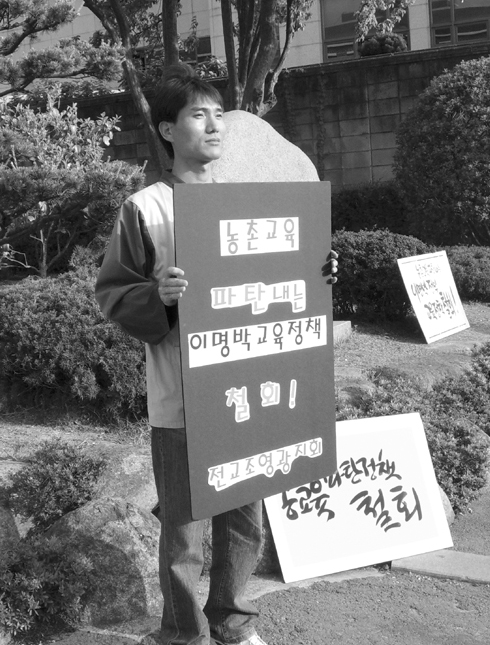 농촌교육
파탄내는
이명박교육정책
철회!
전교조영광지회
파탄정책
철회